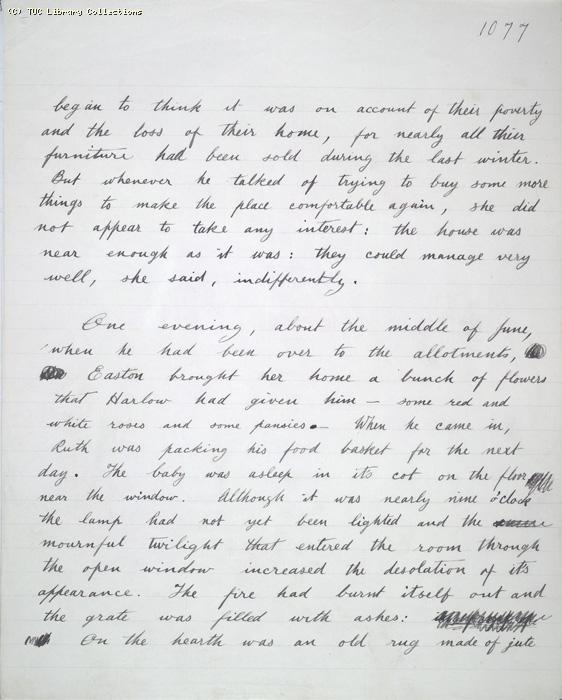 (C) TUC Library Collections
1077
began to think it was on account of their poverty
and the loss of their home, for nearly all their
furniture had been sold during the last winter.
But whenever he talked of trying to buy some more
things to make the place comfortable again, she did
not appear to take any interest: the house was
near enough as it was: they could manage very
well, she said, indifferently.
One evening, about the middle of June,
when he had been over to the allotments,
Easton brought her home a bunch of flowers
that Harlow had given him — some red and
white roses and some pansies. — When he came in,
Ruth was packing his food basket for the next
day. The baby was asleep in its cot on the floor
near the window. Although it was nearly nine o'clock
the lamp had not yet been lighted and the
mournful twilight that entered the room through
the open window increased the desolation of its
appearance. The fire had burnt itself out and
the grate was filled with ashes:
On the hearth was an old rug made of jute